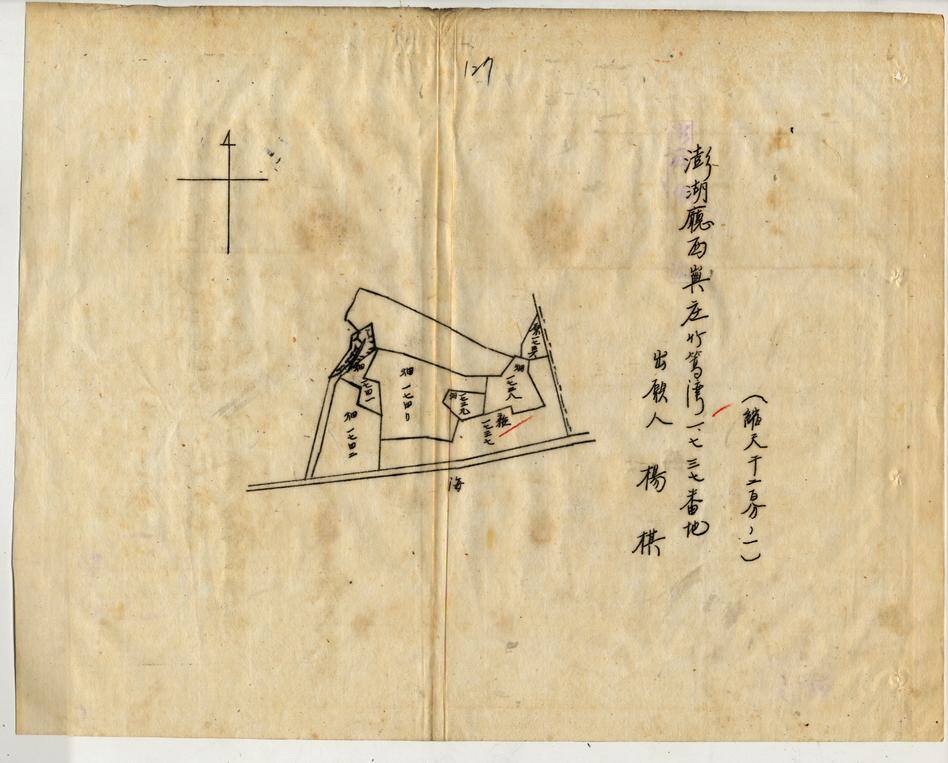 127
(縮尺千二百分ノ一)
澎湖廳西嶼庄竹篙湾一、七三七番地
出願人 楊 棋
原一七三六
畑一七三八
畑一七三九
雜一七三七
畑一七四〇
畑一七四一
畑一七四二
海